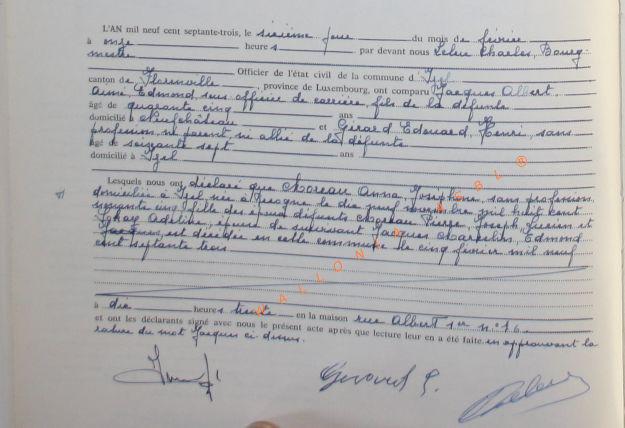 L'AN mil neuf cent septante-trois, le sixième jour du mois de février
à onze heures, par devant nous Charles, Bourg-
mestre
Officier de l'état civil de la commune d'Izel
canton de Florenville, province de Luxembourg, ont comparu Jacques Albert,
Aimé, Edmond, sous officier de carrière, fils de la défunte
âgé de quarante cinq ans
domicilié à Neufchâteau et Gérard, Edouard, Henri, sans
profession, ni parent ni allié de la défunte
âgé de soixante sept ans
domicilié à Izel
Lesquels nous ont déclaré que Moreau Anna, Joséphine, sans profession,
domiciliée à Izel, née à le dix neuf novembre mil huit cent
nonante cinq, fille des époux défunts Moreau Pierre, Joseph, et
Adeline, épouse de survivant Jacques Marcelin, Edmond
Jacques, est décédée en cette commune le cinq février mil neuf
cent septante trois
à dix heures trente en la maison rue Albert 1er n° 16
et ont les déclarants signé avec nous le présent acte après que lecture leur en a été faite, en approuvant la
rature du mot Jacques ci-dessus.
Gerard E.